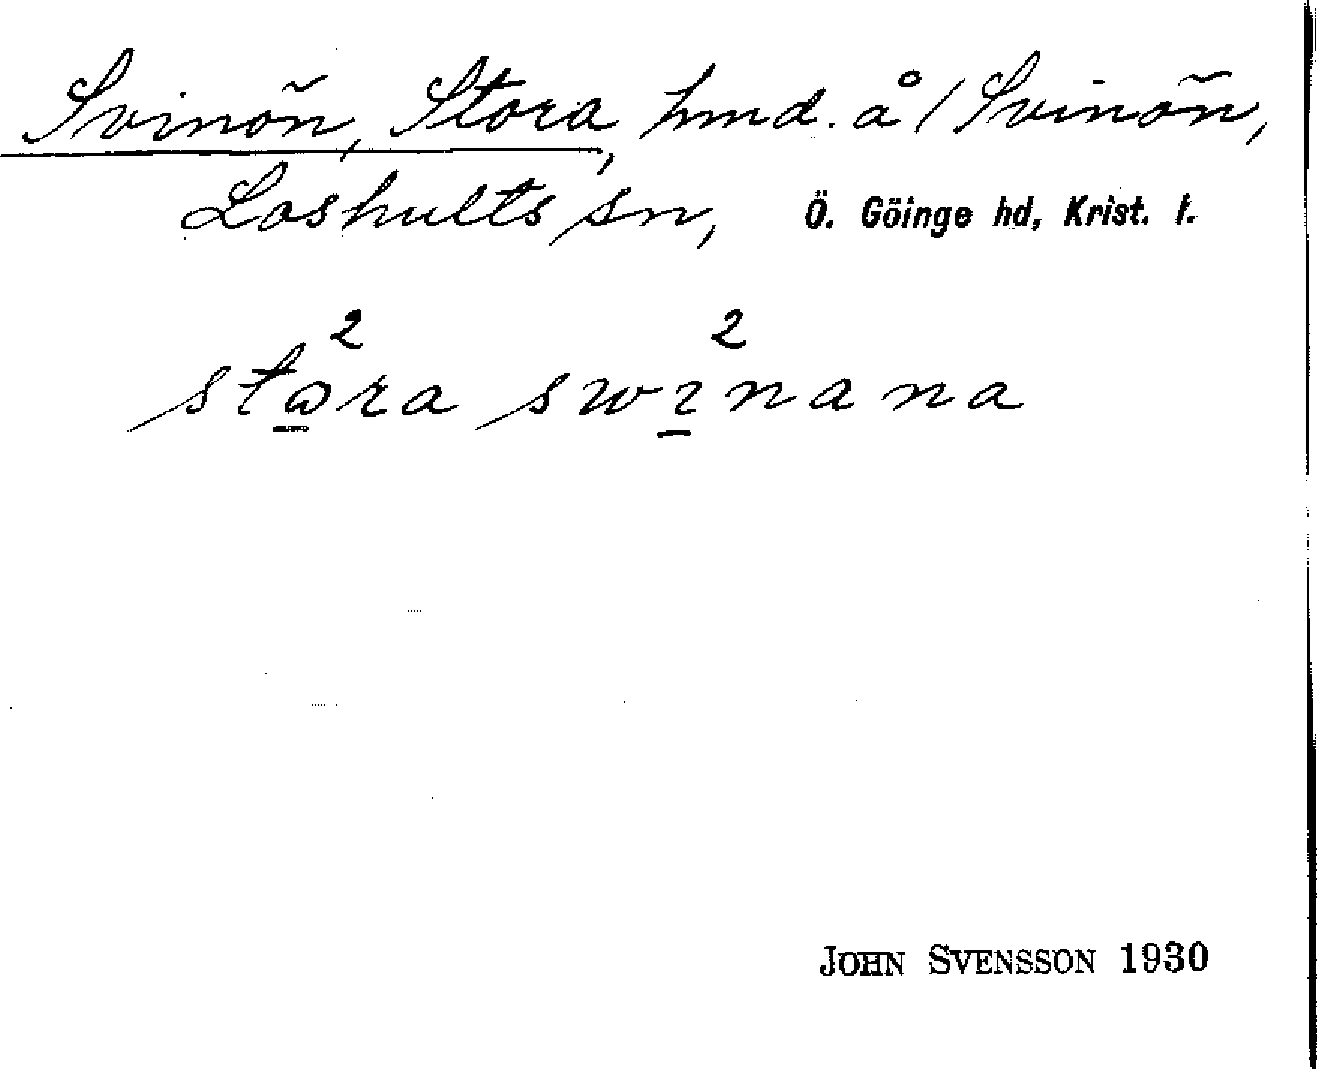 Svinön, Stora, hmd. å / Svinön,
Loshults sn, Ö. Göinge hd, Krist. l.
2 2
stɷra swɩnana
JOHN SVENSSON 1930